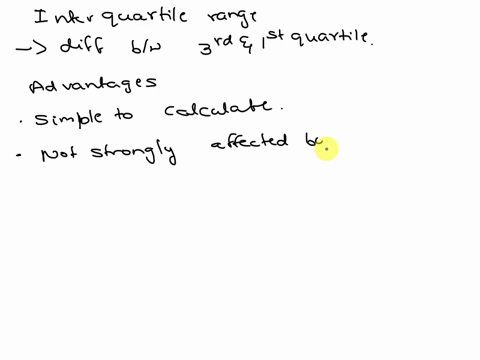 Inter quartile range
-> diff b/w 3rd & 1st quartile.
Advantages
• Simple to calculate.
• Not strongly affected